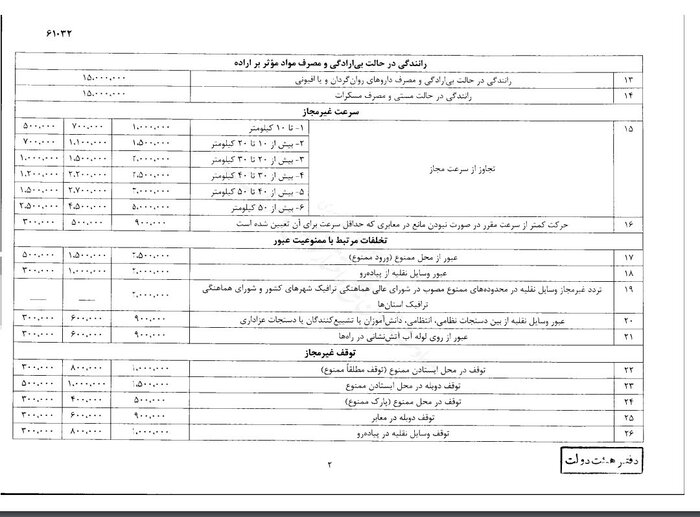 ۶۱۰۳۲
رانندگی در حالت بی‌ارادگی و مصرف مواد مؤثر بر اراده
۱۳ رانندگی در حالت بی‌ارادگی و مصرف داروهای روان‌گردان و یا افیونی ۱۵.۰۰۰.۰۰۰
۱۴ رانندگی در حالت مستی و مصرف مسکرات ۱۵.۰۰۰.۰۰۰
سرعت غیرمجاز
۱۵ تجاوز از سرعت مجاز
۱- تا ۱۰ کیلومتر ۱.۰۰۰.۰۰۰ ۷۰۰.۰۰۰ ۵۰۰.۰۰۰
۲- بیش از ۱۰ تا ۲۰ کیلومتر ۱.۵۰۰.۰۰۰ ۱.۱۰۰.۰۰۰ ۷۰۰.۰۰۰
۳- بیش از ۲۰ تا ۳۰ کیلومتر ۲.۰۰۰.۰۰۰ ۱.۵۰۰.۰۰۰ ۱.۰۰۰.۰۰۰
۴- بیش از ۳۰ تا ۴۰ کیلومتر ۲.۵۰۰.۰۰۰ ۲.۲۰۰.۰۰۰ ۱.۲۰۰.۰۰۰
۵- بیش از ۴۰ تا ۵۰ کیلومتر ۳.۰۰۰.۰۰۰ ۲.۷۰۰.۰۰۰ ۱.۵۰۰.۰۰۰
۶- بیش از ۵۰ کیلومتر ۵.۰۰۰.۰۰۰ ۴.۵۰۰.۰۰۰ ۲.۵۰۰.۰۰۰
۱۶ حرکت کمتر از سرعت مقرر در صورت نبودن مانع در معابری که حداقل سرعت برای آن تعیین شده است ۹۰۰.۰۰۰ ۵۰۰.۰۰۰ ۳۰۰.۰۰۰
تخلفات مرتبط با ممنوعیت عبور
۱۷ عبور از محل ممنوع (ورود ممنوع) ۲.۵۰۰.۰۰۰ ۱.۵۰۰.۰۰۰ ۵۰۰.۰۰۰
۱۸ عبور وسایل نقلیه از پیاده‌رو ۲.۰۰۰.۰۰۰ ۱.۰۰۰.۰۰۰ ۳۰۰.۰۰۰
۱۹ تردد غیرمجاز وسایل نقلیه در محدوده‌های ممنوع مصوب در شورای عالی هماهنگی ترافیک شهرهای کشور و شورای هماهنگی ۲.۰۰۰.۰۰۰ — —
ترافیک استان‌ها
۲۰ عبور وسایل نقلیه از بین دستجات نظامی، انتظامی، دانش‌آموزان یا تشییع‌کنندگان یا دستجات عزاداری ۹۰۰.۰۰۰ ۶۰۰.۰۰۰ ۳۰۰.۰۰۰
۲۱ عبور از روی لوله آب آتش‌نشانی در راه‌ها ۹۰۰.۰۰۰ ۶۰۰.۰۰۰ ۳۰۰.۰۰۰
توقف غیرمجاز
۲۲ توقف در محل ایستادن ممنوع (توقف مطلقاً ممنوع) ۱.۰۰۰.۰۰۰ ۸۰۰.۰۰۰ ۳۰۰.۰۰۰
۲۳ توقف دوبله در محل ایستادن ممنوع ۱.۵۰۰.۰۰۰ ۱.۰۰۰.۰۰۰ ۵۰۰.۰۰۰
۲۴ توقف در محل ممنوع (پارک ممنوع) ۵۰۰.۰۰۰ ۴۰۰.۰۰۰ ۳۰۰.۰۰۰
۲۵ توقف دوبله در معابر ۹۰۰.۰۰۰ ۶۰۰.۰۰۰ ۳۰۰.۰۰۰
۲۶ توقف وسایل نقلیه در پیاده‌رو ۱.۰۰۰.۰۰۰ ۸۰۰.۰۰۰ ۳۰۰.۰۰۰
دفتر هیئت دولت
۲